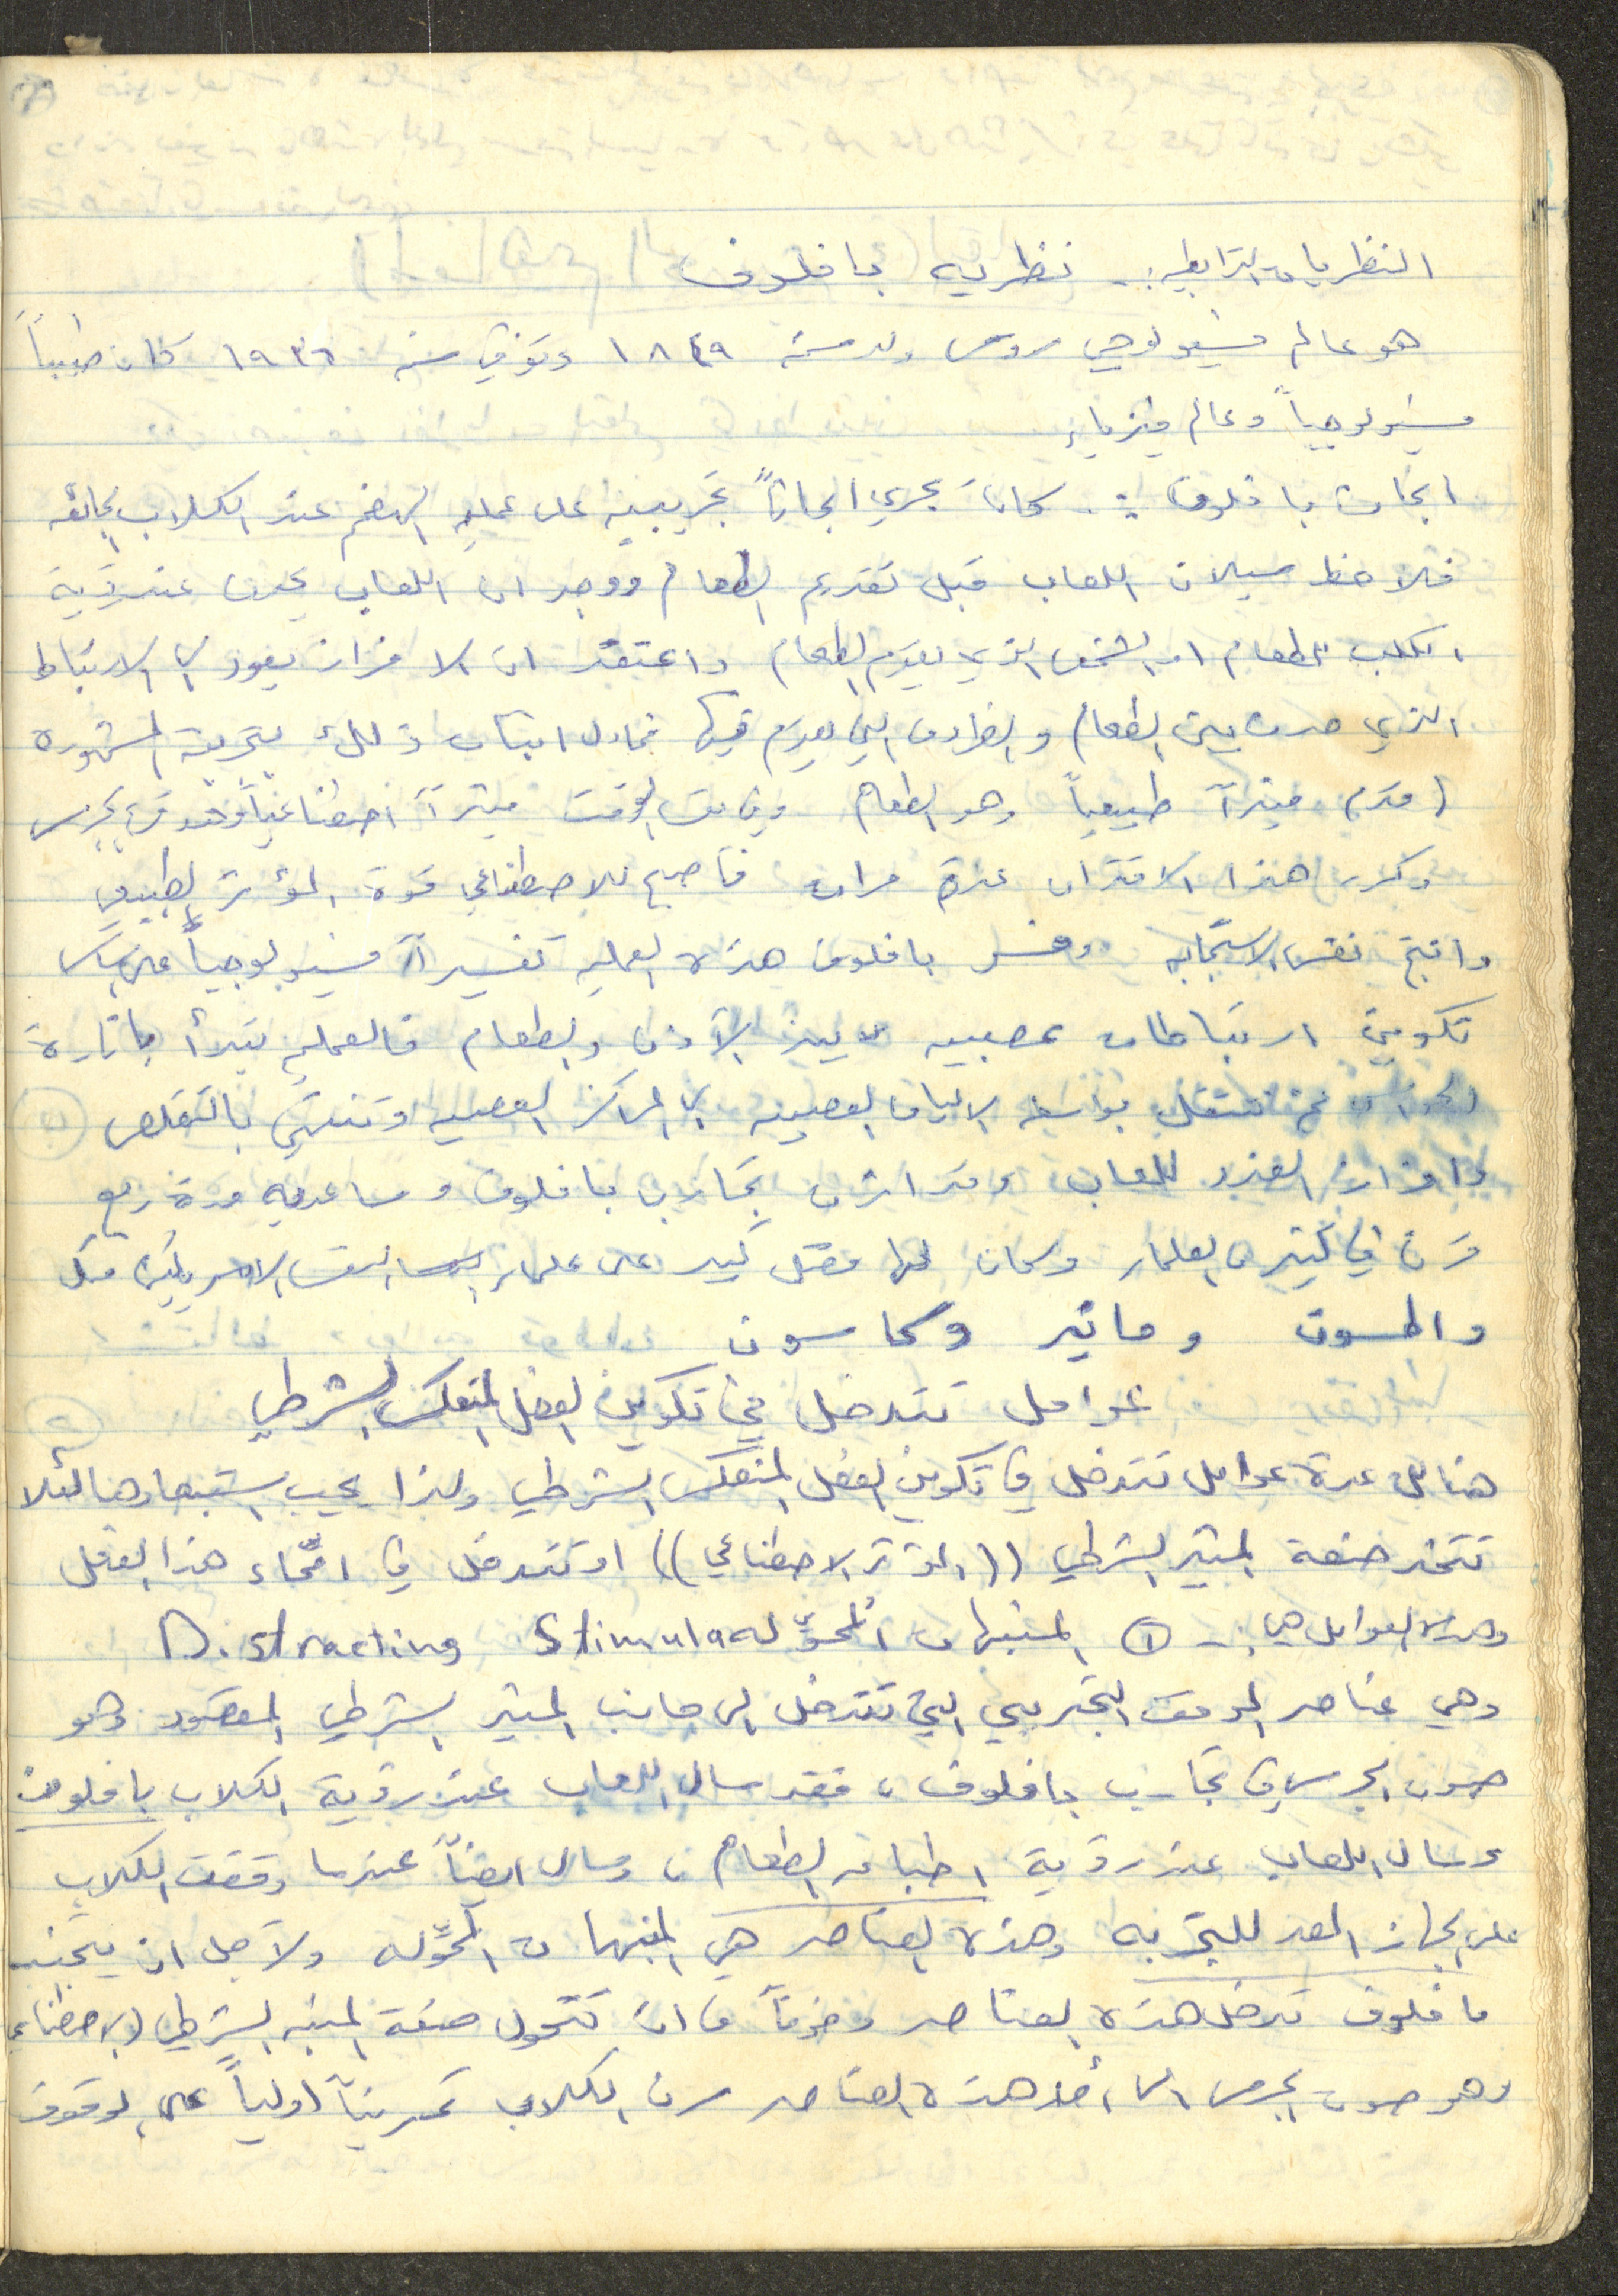 النظريات الترابطيه :- نظريه بافلوف
هو عالم فسيولوجي روسي ولد سنة ١٨٤٩ وتوفي سنه ١٩٣٦ كان طبيباً
فسيولوجياً وعالم فيزياء
ابحاث بافلوف :- كان يجري ابحاثاً تجريبيه على عمليه الهضم عند الكلاب الجائعه
فلاحظ سيلان اللعاب قبل تقديم الطعام ووجد ان اللعاب يحدث عند رؤية
الكلب للطعام او الشخص الذي يقدم الطعام واعتقد ان الافراز يعود الى الارتباط
الذي حدث بين الطعام و الظروف التي يقدم فيها فحاول اثبات ذلك بتجربته المشهوره
(قدم مثيراً طبيعياً وهو الطعام وفي نفس الوقت مثيراً اصطناعياً وهو قرع الجرس
وكرر هذا الاقتران عدة مرات فاصبح للاصطناعي قوة المؤثر الطبيعي
وانتج نفس الاستجابه وفسر بافلوف هذه العمليه تفسيراً فسيولوجياً على اساس
تكوين ارتباطات عصبيه بين الاذن والطعام فالعمليه تبدأ باثارة
الحواس ثم تنتقل بواسطه الالياف العصبيه الى المراكز العصبيه وتنتهي بالتقلص
وافراز الغدد للعاب وقد اثرت تجارب بافلوف ومساعديه مدة ربع
قرن في كثير من العلماء وكان لها فضل كبير على علماء النفس الامريكين مثل
واطسون وماثير وكاسون
عوامل تتدخل في تكوين الفعل المنعكس الشرطي
هنالك عدة عوامل تتدخل في تكوين الفعل المنعكس الشرطي ولذا يجب استبعادها لئلا
تتخذ صفة المثير الشرطي ((المؤثر الاصطناعي)) او تتدخل في امحاء هذا الفعل
وهذه العوامل هي :- ① المنبهات المحوّله Distracting Stimulad
وهي عناصر الموقف التجريبي التي تتدخل الى جانب المثير الشرطي المقصود وهو
صوت الجرس في تجارب بافلوف ، فقد سال اللعاب عند رؤية الكلاب بافلوف
وسال اللعاب عند رؤية اطباق الطعام ، وسال ايضاً عندما وقفت الكلاب
على الجهاز المعد للتجربه وهذه العناصر هي المنبهات المحوّله ولاجل ان يتجنب
بافلوف تدخل هذه العناصر وخوفاً من ان تتحول صفة المنبه الشرطي (الاصطناعي
وهو صوت الجرس الى أحد هذه العناصر مرن الكلاب تمريناً اولياً على الوقوف